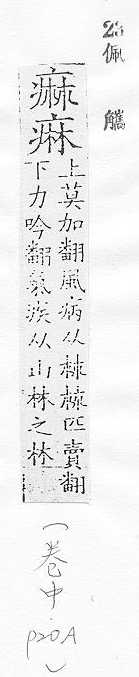 23
佩觿
痳痳
上莫加翻風病从𣏟𣏟匹賣翻
下力吟翻𤵸疾从山林之林
(卷中 p20A)